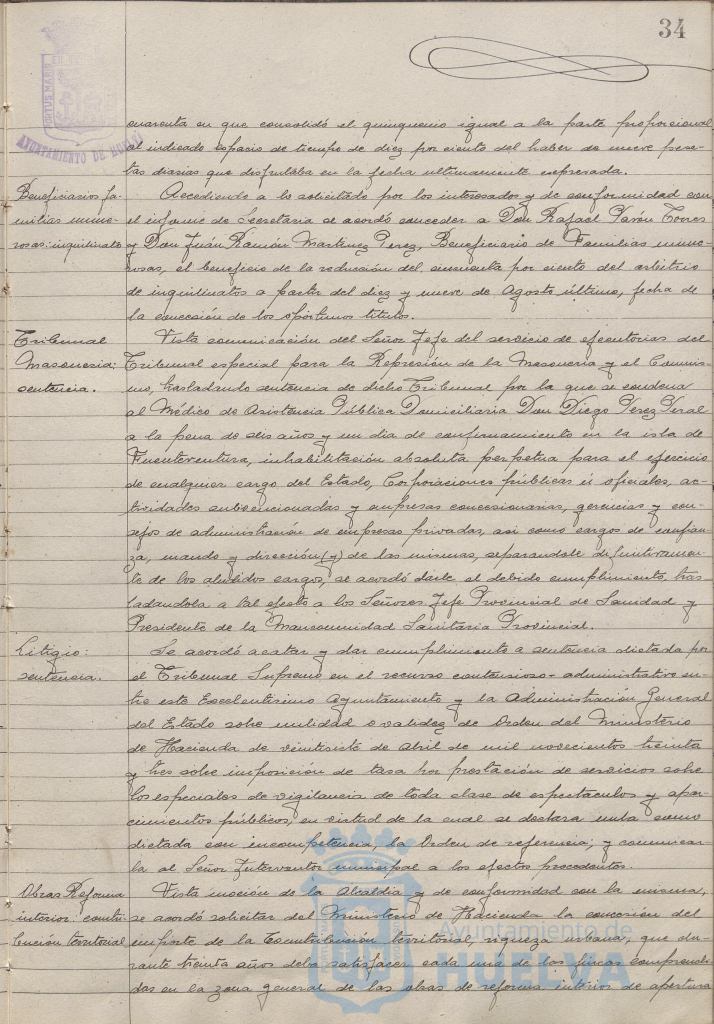 34
AYUNTAMIENTO DE HUELVA
cuarenta en que consolidó el quinquenio igual a la parte proporcional
al indicado espacio de tiempo de diez por ciento del haber de nueve pese-
tas diarias que disfrutaba en la fecha ultimamente expresada.
Beneficiarios fa-
milias nume-
rosas: inquilinato
Accediendo a lo solicitado por los interesados y de conformidad con
el informe de Secretaria se acordó conceder a Don Rafael Torres
y Don Juan Ramón Martinez Perez, Beneficiario de Familias nume-
rosas, el beneficio de la reducción del cincuenta por ciento del arbitrio
de inquilinatos a partir del diez y nueve de Agosto último, fecha de
la concesión de los oportunos titulos.
Tribunal
Masoneria:
sentencia.
Vista comunicación del Señor Jefe del servicio de ejecutorias del
Tribunal especial para la Represión de la Masoneria y el Comunis-
mo, trasladando sentencia de dicho Tribunal por la que se condena
al Médico de Asistencia Pública Domiciliaria Don Diego Perez Peral
a la pena de seis años y un dia de confinamiento en la isla de
Fuenteventura, inhabilitación absoluta perpetua para el ejercicio
de cualquier cargo del Estado, Corporaciones públicas ú oficiales, ac-
tividades subvencionadas y empresas concesionarias, gerencias y con-
sejos de administración de empresas privadas, asi como cargos de confian-
za, mando y dirección (y) de las mismas, separandole definitivamen-
te de los aludidos cargos, se acordó darle el debido cumplimiento, tras
ladandola a tal efecto a los Señores Jefe Provincial de Sanidad y
Presidente de la Mancomunidad Sanitaria Provincial.
Litigio:
sentencia.
Se acordó acatar y dar cumplimiento a sentencia dictada por
el Tribunal Supremo en el recurso contensioso-administrativo en-
tre este Excelentisimo Ayuntamiento y la Administración General
del Estado sobre nulidad o validez de Orden del Ministerio
de Hacienda de veintisiete de Abril de mil novecientos treinta
y tres sobre imposición de tasa por prestación de servicios sobre
los especiales de vigilancia de toda clase de espectaculos y
públicos, en virtud de la cual se declara nula como
dictada con incompetencia, la Orden de referencia; y comunicar-
la al Señor Interventor municipal a los efectos procedentes.
Obras Reforma
interior: contri-
bución territorial
Vista moción de la Alcaldia y de conformidad con la misma,
se acordó solicitar del Ministerio de Hacienda la concesión del
importe de la Contribución territorial, riqueza urbana, que du-
rante treinta años deba satisfacer cada una de las fincas comprendi-
das en la zona general de las obras de reforma interior de apertura
Ayuntamiento de
HUELVA